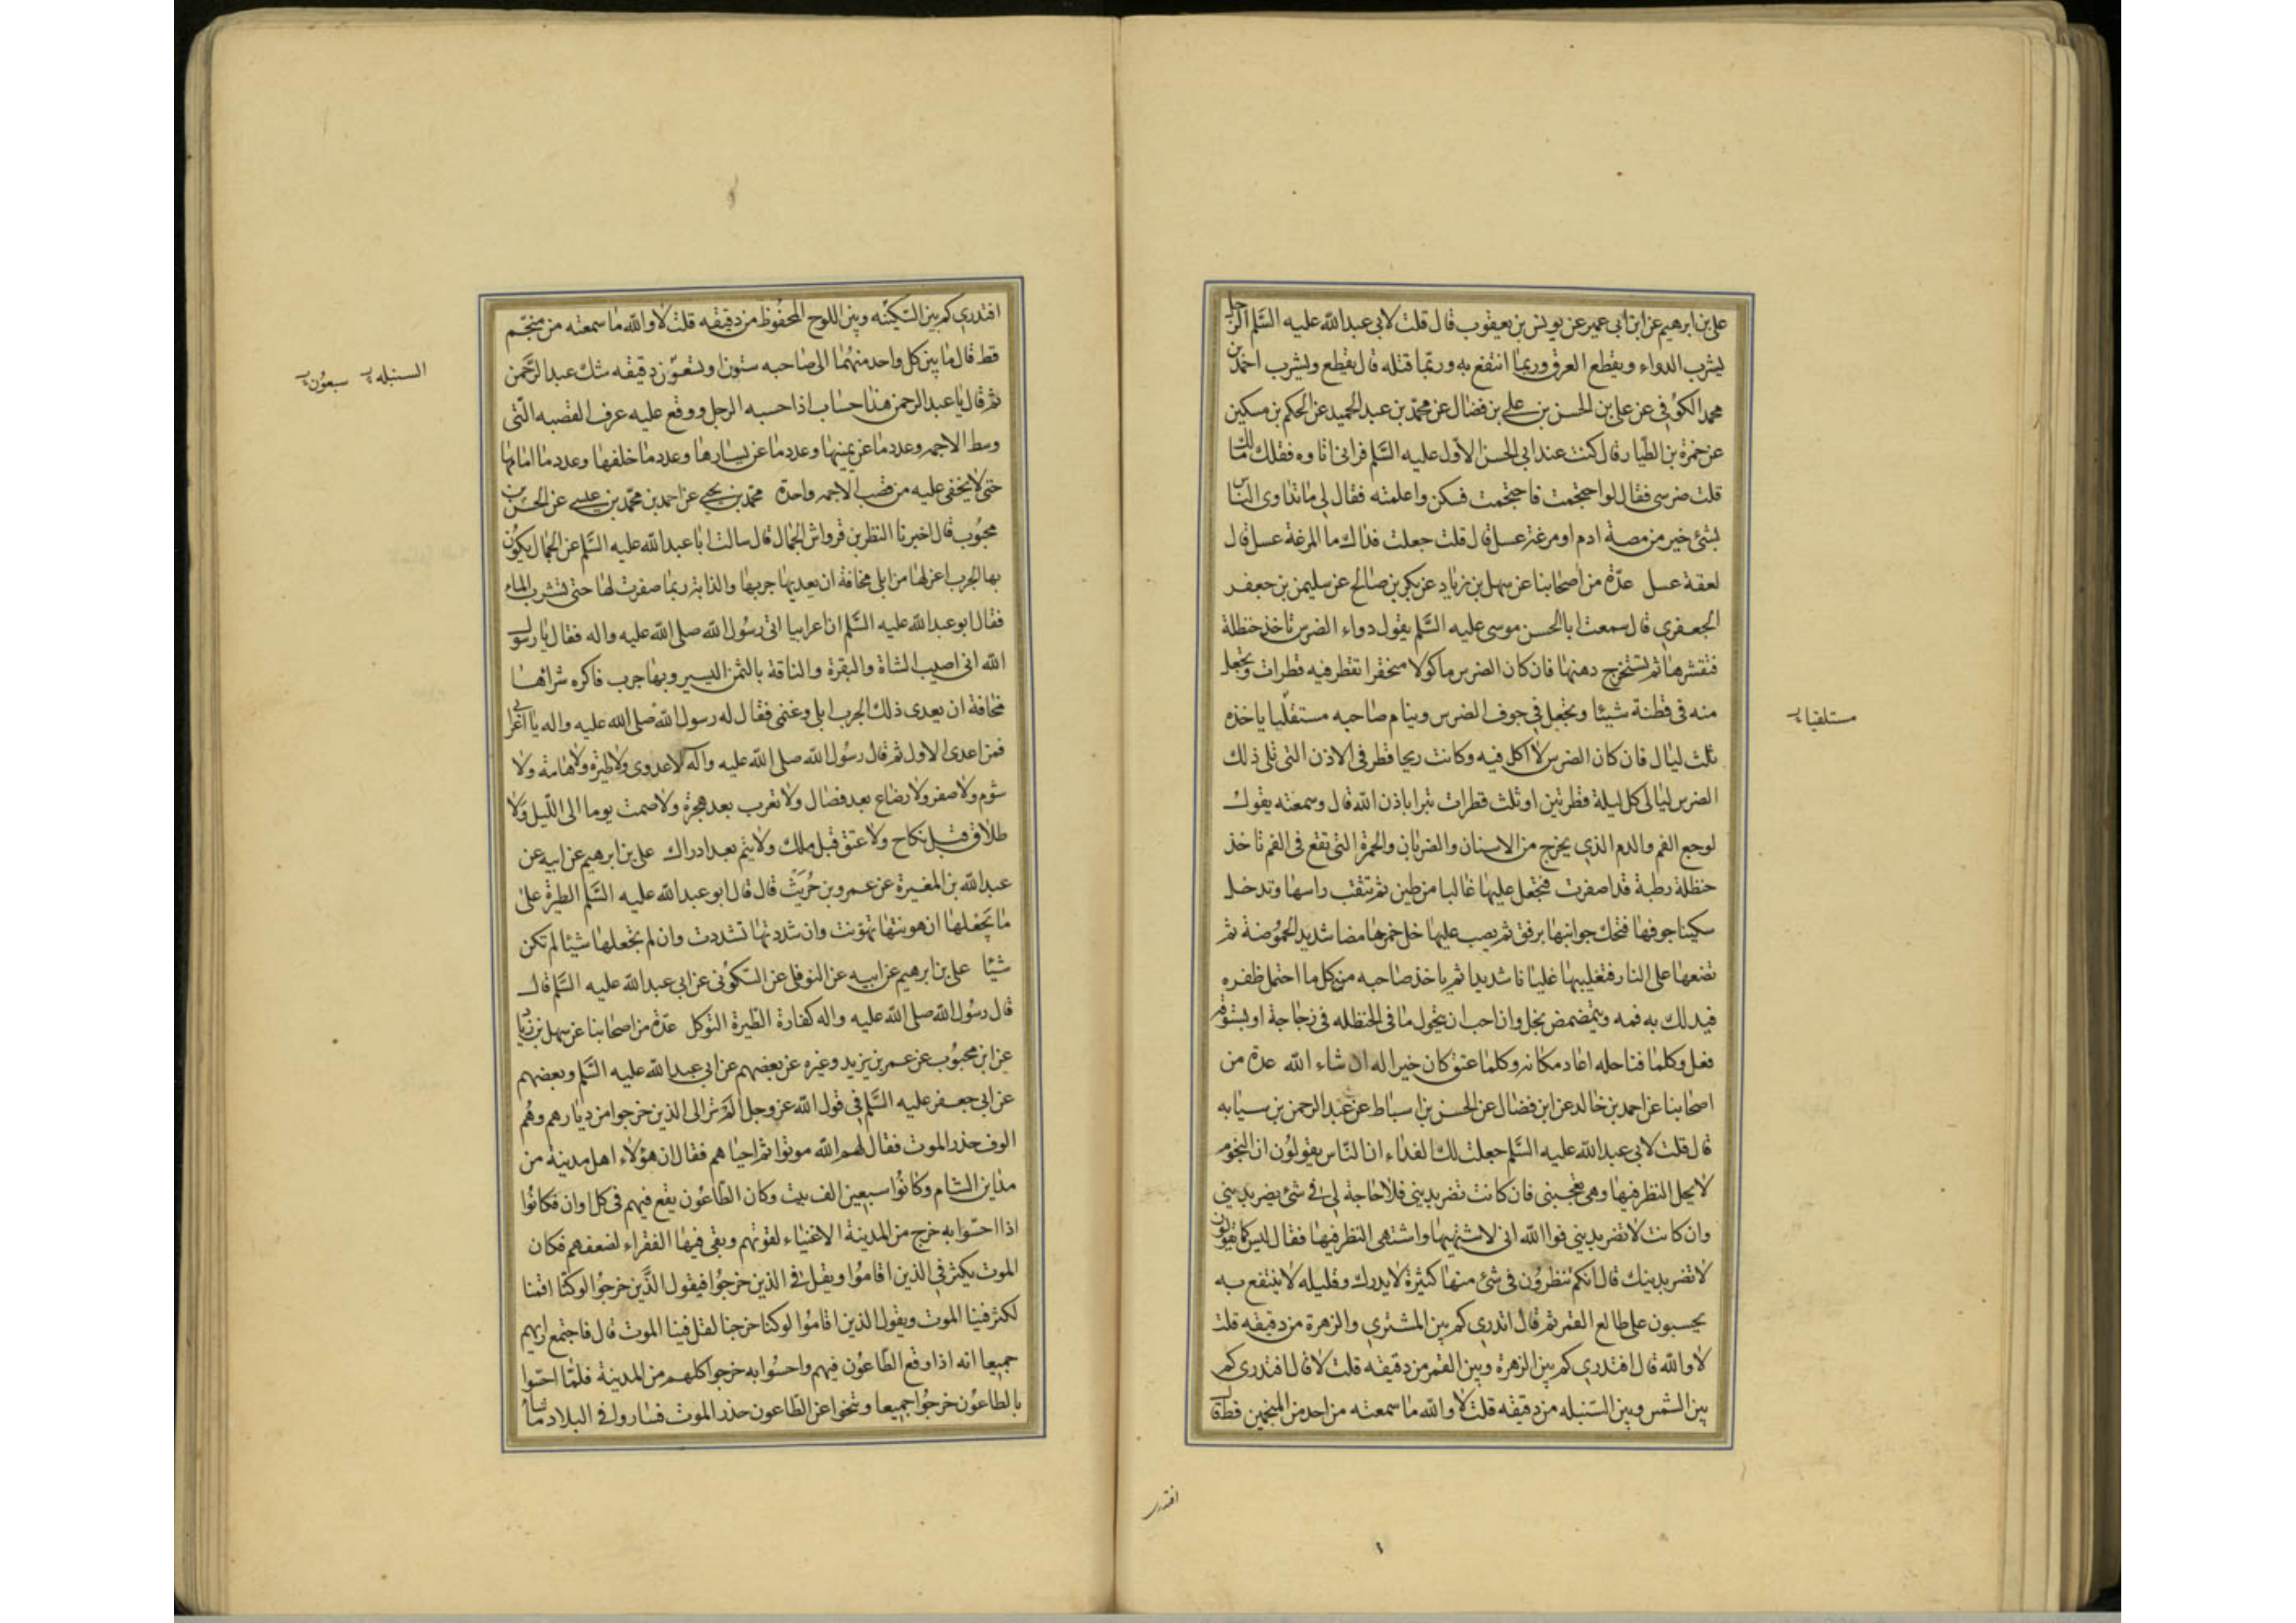 علي بن ابرهيم عن ابن ابي عمير عن يونس بن يعقوب قال قلت لابي عبدالله عليه السلم الرجل
يشرب الدواء ويقطع العرق وربما انتفع به وربما قتله قال يقطع ويشرب احمد بن
محمد الكوفي عن علي بن الحسن بن علي بن فضال عن محمد بن عبد الحميد عن الحكم بن مسكين
عن حمزة بن الطيار قال كنت عند ابي الحسن الاول عليه السلم فراني اتاوه فقلك مالك
قلت ضرسي فقال لو احتجمت فاحتجمت فسكن واعلمته فقال لي ما تداوى الناس
بشئ خير من مصة ادم او مرغة عسل قال قلت جعلت فداك ما المرغة عسل قال
لعقة عسل عدة من اصحابنا عن سهل بن زياد عن بكر بن صالح عن سليمن بن جعفر
الجعفري قال سمعت ابا الحسن موسى عليه السلم يقول دواء الضرس تاخذ حنظلة
فتقشرها ثم تستخرج دهنها فان كان الضرس ماكولا منحفرا تقطر فيه قطرات وتجعل
منه في قطنة شيئا وتجعل في جوف الضرس وينام صاحبه مستقلبا ياخذه
مستلقيا
ثلث ليال فان كان الضرس لا اكل فيه وكانت ريحا قطر في الاذن التي تلي ذلك
الضرس ليالى كل ليلة قطرتين او ثلث قطرات تبرا باذن الله قال وسمعته يقول
لوجع الفم والدم الذي يخرج من الاسنان والضربان والحمرة التي تقع في الفم تاخذ
حنظلة رطبة قد اصفرت فتجعل عليها غالبا من طين ثم تثقب راسها وتدخل
سكينا جوفها فتحك جوانبها برفق ثم يصب عليها خل خمر حامضا شديد الحموضة ثم
تضعها على النار فتغليها غليانا شديدا ثم ياخذ صاحبه من كل ما احتمل ظفره
فيدلك به فمه ويتمضمض بخل وان احب ان يحول ما في الحنظله في زجاجة او بستوقه
فعل وكلما فنا خله اعاد مكانه وكلما عتق كان خيرا له ان شاء الله عدة من
اصحابنا عن احمد بن خالد عن ابن فضال عن الحسن بن اسباط عن عبد الرحمن بن سيابه
قال قلت لابي عبدالله عليه السلم جعلت لك الفداء ان الناس يقولون ان النجوم
لا يحل النظر فيها وهي تعجبني فان كانت تضر بديني فلا حاجة لي في شئ يضر بديني
وان كانت لا تضر بديني فوالله اني لاشتهيها واشتهى النظر فيها فقال ليس كما يقولون
لا تضر بدينك قال انكم تنظرون في شئ منها كثيره لا يدرك وقليله لا ينتفع به
يحسبون على طالع القمر ثم قال اتدري كم بين المشتري والزهرة من دقيقه قلت
لا والله قال افتدري كم بين الزهرة وبين القمر من دقيقه قلت لا قال افتدري كم
بين الشمس وبين السنبله من دقيقه قلت لا والله ما سمعته من احد من المنجمين قط قال
افتدري
افتدري كم بين السكينه وبين اللوح المحفوظ من دقيقه قلت لا والله ما سمعته من منجم
قط قال ما بين كل واحد منهما الى صاحبه ستون او تسعون دقيقه شك عبد الرحمن
السنبله سبعون
ثم قال يا عبد الرحمن هذا حساب اذا حسبه الرجل ووقع عليه عرف القصبه التي
وسط الاجمه وعدد ما عن يمينها وعدد ما عن يسارها وعدد ما خلفها وعدد ما امامها
حتى لا يخفى عليه من قصب الاجمه واحدة محمد بن يحيى عن احمد بن محمد بن عيسى عن الحسن بن
محبوب قال اخبرنا النظر بن قرواش الجمال قال سالت ابا عبدالله عليه السلم عن الجمال يكون
بها الجرب اعزلها من ابلي مخافة ان يعديها جربها والدابة ربما صفرت لها حتى تشرب الماء
فقال ابو عبدالله عليه السلم ان اعرابيا اتى رسول الله صلى الله عليه واله فقال يا رسول
الله اني اصيب الشاة والبقرة والناقة بالثمن اليسير وبها جرب فاكره شراها
مخافة ان يعدى ذلك الجرب ابلي وغنمي فقال له رسول الله صلى الله عليه واله يا اعرابي
فمن اعدى الاول ثم قال رسول الله صلى الله عليه وآله لا عدوى ولا طيرة ولا هامة ولا
شوم ولا صفر ولا رضاع بعد فصال ولا تعرب بعد هجرة ولا صمت يوما الى الليل ولا
طلاق قبل نكاح ولا عتق قبل ملك ولا يتم بعد ادراك علي بن ابرهيم عن ابيه عن
عبد الله بن المغيرة عن عمرو بن حريث قال قال ابو عبدالله عليه السلم الطيرة على
ما تجعلها ان هونتها تهونت وان شددتها تشددت وان لم تجعلها شيئا لم تكن
شيئا علي بن ابرهيم عن ابيه عن النوفلي عن السكوني عن ابي عبدالله عليه السلم قال
قال رسول الله صلى الله عليه واله كفارة الطيرة التوكل عدة من اصحابنا عن سهل بن زياد
عن ابن محبوب عن عمر بن يزيد وغيره عن بعضهم عن ابي عبدالله عليه السلم وبعضهم
عن ابي جعفر عليه السلم في قول الله عز وجل الم تر الى الذين خرجوا من ديارهم وهم
الوف حذر الموت فقال لهم الله موتوا ثم احياهم فقال ان هؤلاء اهل مدينة من
مداين الشام وكانوا سبعين الف بيت وكان الطاعون يقع فيهم في كل اوان فكانوا
اذا احسوا به خرج من المدينة الاغنياء لقوتهم وبقي فيها الفقراء لضعفهم فكان
الموت يكثر في الذين اقاموا ويقل في الذين خرجوا فيقول الذين خرجوا لو كنا اقمنا
لكثر فينا الموت ويقول الذين اقاموا لو كنا خرجنا لقل فينا الموت قال فاجتمع رايهم
جميعا انه اذا وقع الطاعون فيهم واحسوا به خرجوا كلهم من المدينة فلما احسوا
بالطاعون خرجوا جميعا وتنحوا عن الطاعون حذر الموت فساروا في البلاد ما شاء